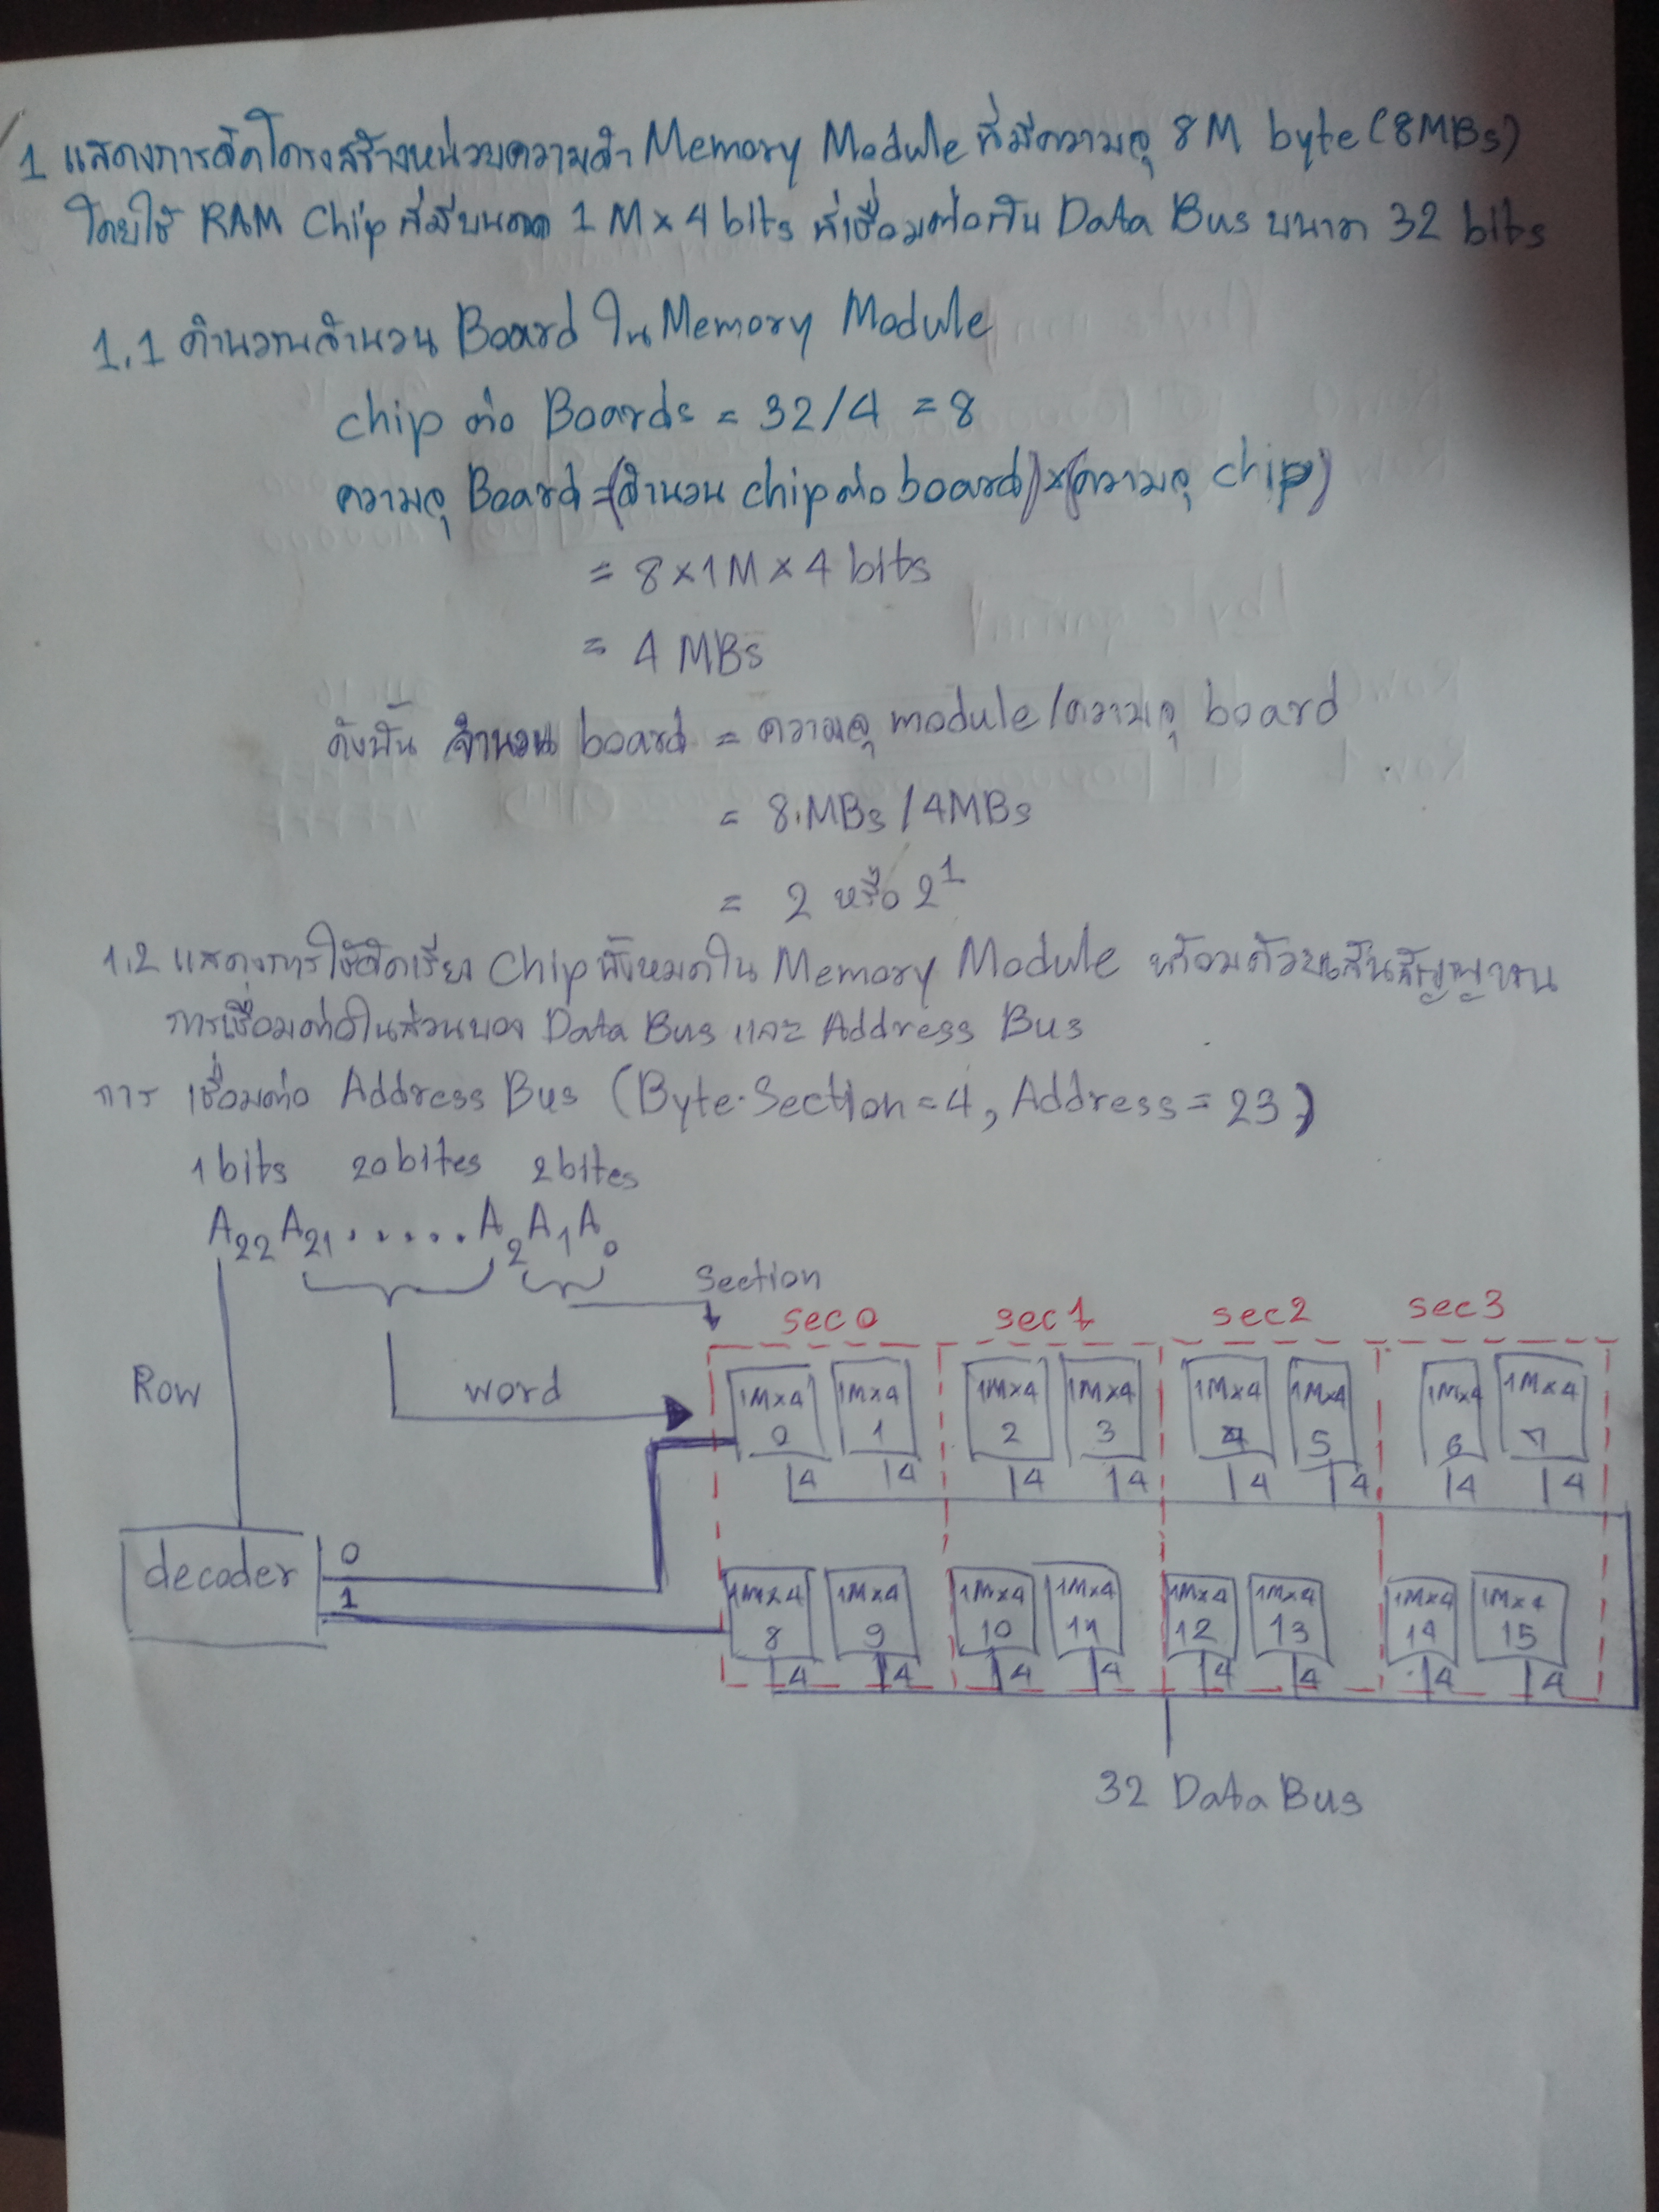 1 แสดงการจัดโครงสร้างหน่วยความจำ Memory Module ที่มีความจุ 8M byte (8MBs)
โดยใช้ RAM Chip ที่มีขนาด 1 M x 4 bits ที่เชื่อมต่อกับ Data Bus ขนาด 32 bits
1.1 คำนวณจำนวน Board ใน Memory Module
chip ต่อ Boards = 32/4 = 8
ความจุ Board = (จำนวน chip ต่อ board) x (ความจุ chip)
= 8 x 1M x 4 bits
= 4 MBs
ดังนั้น จำนวน board = ความจุ module / ความจุ board
= 8 MBs / 4MBs
= 2 หรือ 2¹
1.2 แสดงการใช้จัดเรียง Chip ทั้งหมดใน Memory Module พร้อมด้วยเส้นสัญญาณ
การเชื่อมต่อในส่วนของ Data Bus และ Address Bus
การ เชื่อมต่อ Address Bus (Byte-Section = 4, Address = 23)
1 bits 20 bites 2 bites
A₂₂ A₂₁ ...... A₂ A₁ A₀
Section
sec 0 sec 1 sec 2 sec 3
Row
word
1M x 4 1M x 4 1M x 4 1M x 4 1M x 4 1M x 4 1M x 4 1M x 4
0 1 2 3 4 5 6 7
4 4 4 4 4 4 4 4
decoder
0
1
1M x 4 1M x 4 1M x 4 1M x 4 1M x 4 1M x 4 1M x 4 1M x 4
8 9 10 11 12 13 14 15
4 4 4 4 4 4 4 4
32 Data Bus